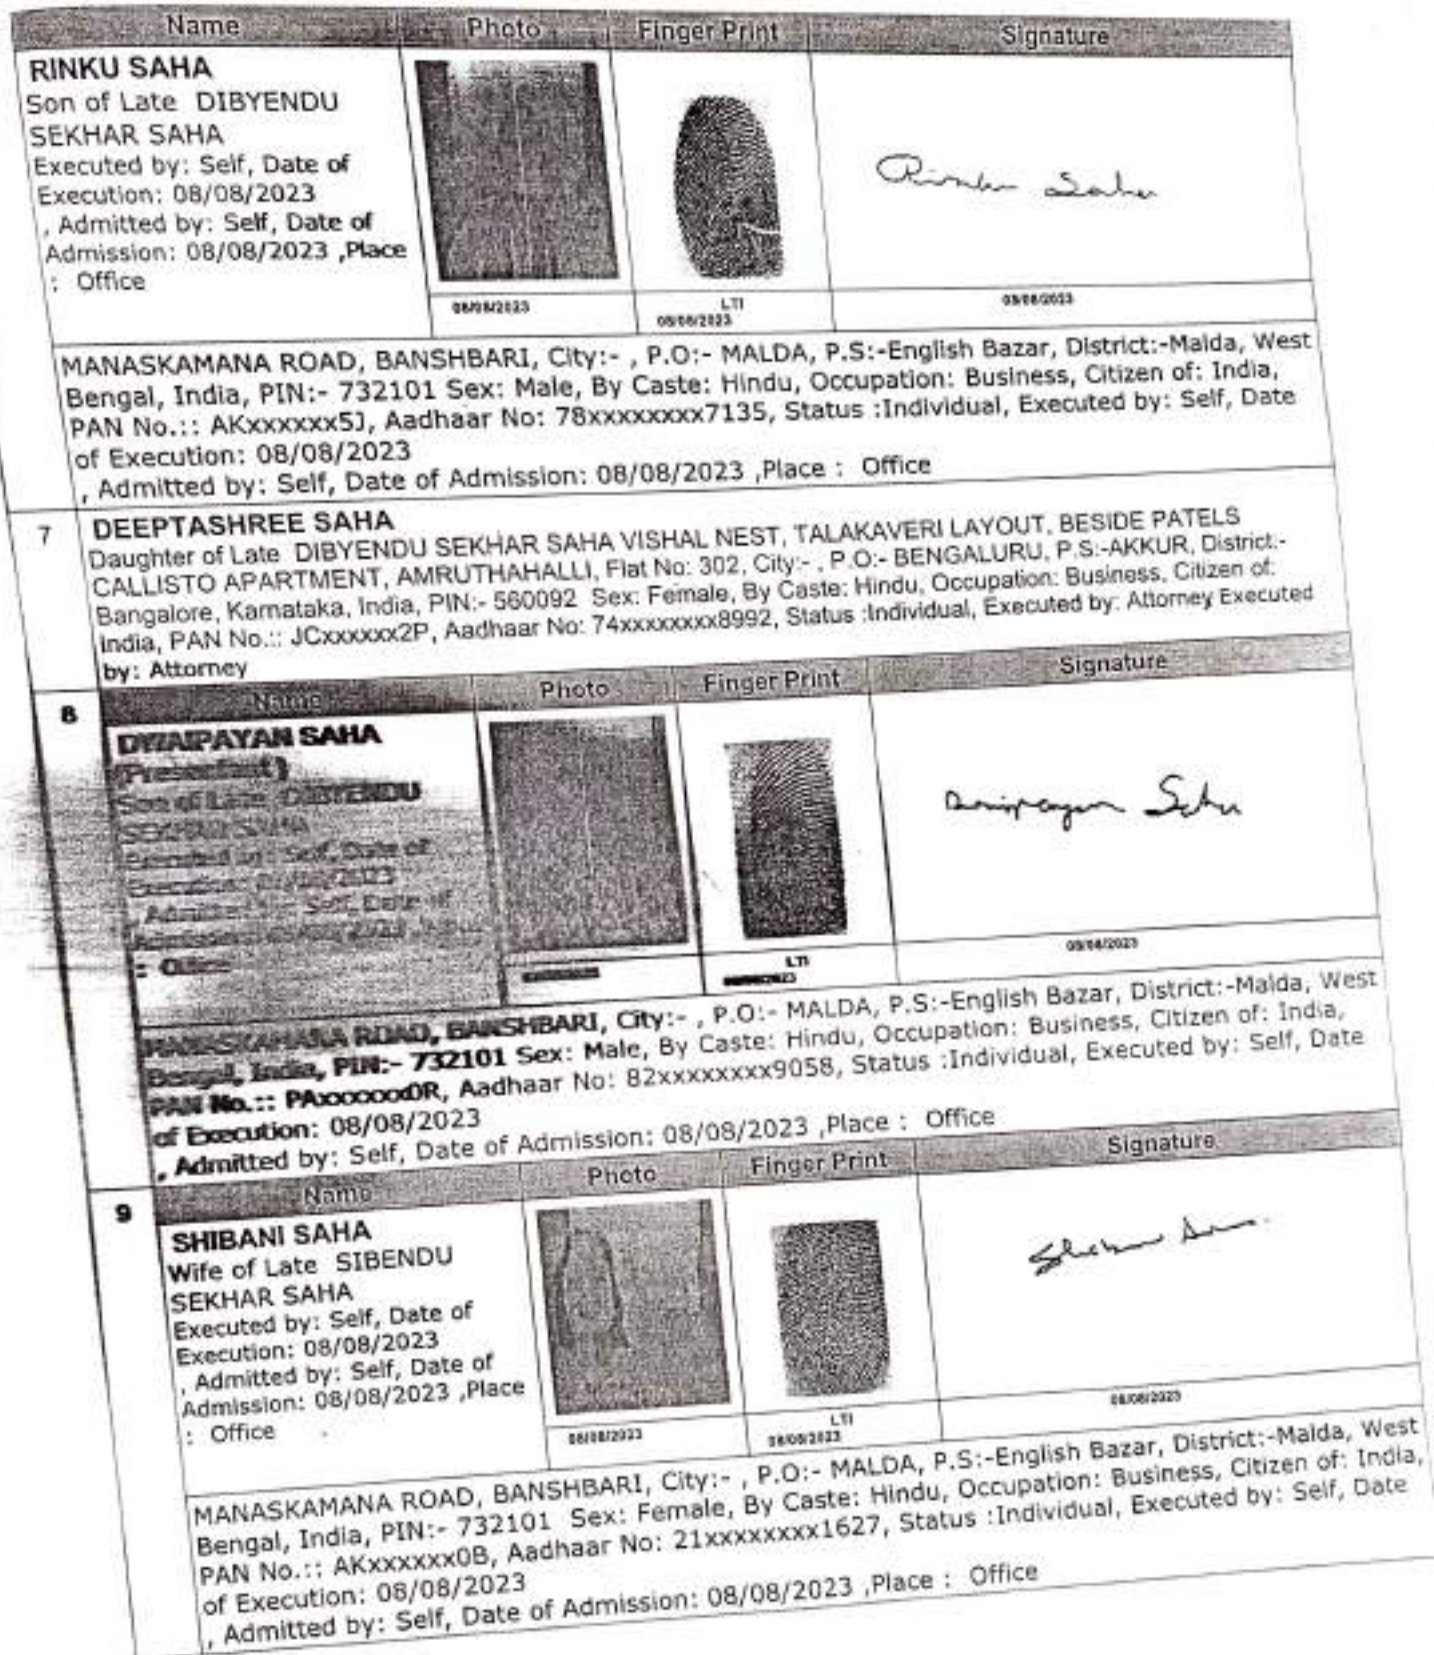 Name Photo Finger Print Signature
RINKU SAHA
Son of Late DIBYENDU
SEKHAR SAHA
Executed by: Self, Date of
Execution: 08/08/2023
, Admitted by: Self, Date of
Admission: 08/08/2023 ,Place
: Office
Rinku Saha
08/08/2023
LTI
08/08/2023
08/08/2023
MANASKAMANA ROAD, BANSHBARI, City:- , P.O:- MALDA, P.S:-English Bazar, District:-Malda, West
Bengal, India, PIN:- 732101 Sex: Male, By Caste: Hindu, Occupation: Business, Citizen of: India,
PAN No.:: AKxxxxxx5J, Aadhaar No: 78xxxxxxxx7135, Status :Individual, Executed by: Self, Date
of Execution: 08/08/2023
, Admitted by: Self, Date of Admission: 08/08/2023 ,Place : Office
7 DEEPTASHREE SAHA
Daughter of Late DIBYENDU SEKHAR SAHA VISHAL NEST, TALAKAVERI LAYOUT, BESIDE PATELS
CALLISTO APARTMENT, AMRUTHAHALLI, Flat No: 302, City:- , P.O:- BENGALURU, P.S:-AKKUR, District:-
Bangalore, Karnataka, India, PIN:- 560092 Sex: Female, By Caste: Hindu, Occupation: Business, Citizen of:
India, PAN No.:: JCxxxxxx2P, Aadhaar No: 74xxxxxxxx8992, Status :Individual, Executed by: Attorney Executed
by: Attorney
8 Name Photo Finger Print Signature
DWAIPAYAN SAHA
(Presentant)
Son of Late DIBYENDU
SEKHAR SAHA
Executed by: Self, Date of
Execution: 
, Admitted by: Self, Date of
Admission: 
: Office
Dwaipayan Saha
LTI
08/08/2023
MANASKAMANA ROAD, BANSHBARI, City:- , P.O:- MALDA, P.S:-English Bazar, District:-Malda, West
Bengal, India, PIN:- 732101 Sex: Male, By Caste: Hindu, Occupation: Business, Citizen of: India,
PAN No.:: PAxxxxxx0R, Aadhaar No: 82xxxxxxxx9058, Status :Individual, Executed by: Self, Date
of Execution: 08/08/2023
, Admitted by: Self, Date of Admission: 08/08/2023 ,Place : Office
9 Name Photo Finger Print Signature
SHIBANI SAHA
Wife of Late SIBENDU
SEKHAR SAHA
Executed by: Self, Date of
Execution: 08/08/2023
, Admitted by: Self, Date of
Admission: 08/08/2023 ,Place
: Office
08/08/2023
LTI
08/08/2023
08/08/2023
MANASKAMANA ROAD, BANSHBARI, City:- , P.O:- MALDA, P.S:-English Bazar, District:-Malda, West
Bengal, India, PIN:- 732101 Sex: Female, By Caste: Hindu, Occupation: Business, Citizen of: India,
PAN No.:: AKxxxxxx0B, Aadhaar No: 21xxxxxxxx1627, Status :Individual, Executed by: Self, Date
of Execution: 08/08/2023
, Admitted by: Self, Date of Admission: 08/08/2023 ,Place : Office